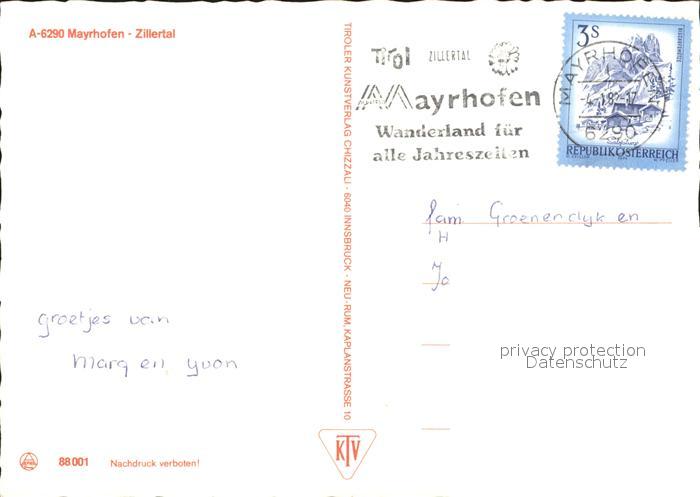 A-6290 Mayrhofen - Zillertal
groetjes van
Marq en yvon
88001 Nachdruck verboten!
TIROLER KUNSTVERLAG CHIZZALI · 6040 INNSBRUCK - NEU-RUM, KAPLANSTRASSE 10
KTV
Tirol ZILLERTAL
Mayrhofen
Wanderland für
alle Jahreszeiten
3S
MAYRHOFEN
6290
REPUBLIK ÖSTERREICH
fam Groenendyk en
H
Jo
privacy protection
Datenschutz